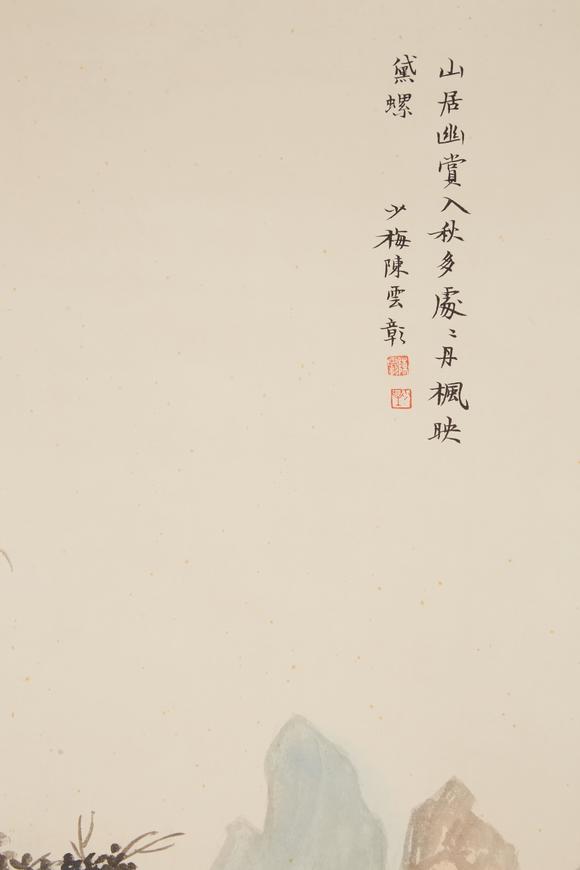 山居幽賞入秋多處〻丹楓映
黛螺
少梅陳雲彰